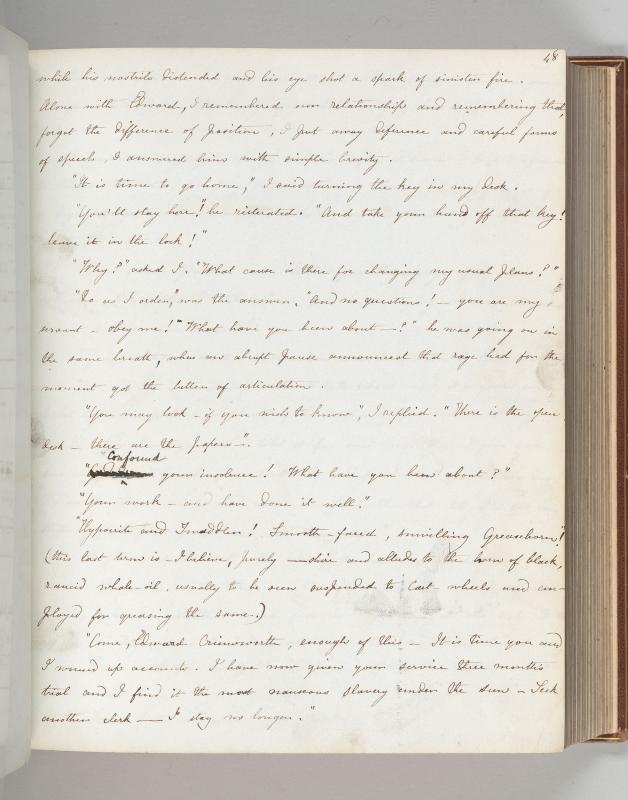 48
while his nostrils distended and his eye shot a spark of sinister fire.
Alone with Edward, I remembered our relationship and remembering that,
forgot the difference of position, I put away deference and careful forms
of speech, I answered him with simple brevity.
"It is time to go home," I said turning the key in my desk.
"You'll stay here!" he reiterated. "And take your hand off that key!
leave it in the lock!"
"Why?" asked I. "What cause is there for changing my usual plans?"
"Do as I order," was the answer, "And no questions! — you are my
servant – obey me!" "What have you been about —?" he was going on in
the same breath, when an abrupt pause announced that rage had for the
moment got the better of articulation.
"You may look – if you wish to know", I replied. "There is the open
desk – there are the papers—".
"Confound
your insolence! What have you been about?"
"Your work – and have done it well."
"Hypocrite and Twaddler! Smooth-faced, snivelling Greasehorn!"
(this last term is – I believe, purely ——shire and alludes to the horn of black,
rancid whale-oil, usually to be seen suspended to cart-wheels and em-
ployed for greasing the same.)
"Come, Edward Crimsworth, enough of this – It is time you and
I wound up accounts. I have now given your service three months
trial and I find it the most nauseous slavery under the sun – Seek
another clerk — I stay no longer."